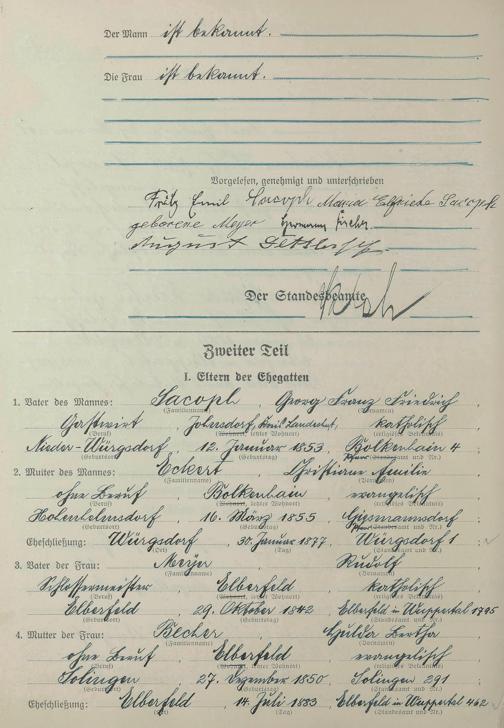 Der Mann ist bekannt.
Die Frau ist bekannt.
Vorgelesen, genehmigt und unterschrieben
Fritz Emil Sacoph Maria Elfriede Sacoph
geborene Meyer Hermann Fischer
August
Der Standesbeamte
Zweiter Teil
I. Eltern der Ehegatten
1. Vater des Mannes: Sacoph, Georg Franz Friedrich,
(Familienname) (Vornamen)
Gastwirt, Johersdorf, Kreis Landeshut, katholisch
(Beruf) (Wohnort, letzter Wohnort) (religiöses Bekenntnis)
Nieder-Würgsdorf, 12. Januar 1853, Bolkenhain 4
(Geburtsort) (Geburtstag) (Standesamt und Nr.)
2. Mutter des Mannes: Eckert, Christiane Emilie
(Familienname) (Vornamen)
ohne Beruf, Bolkenhain, evangelisch
(Beruf) (Wohnort, letzter Wohnort) (religiöses Bekenntnis)
Hohenhelmsdorf, 16. März 1855, Giesmannsdorf
(Geburtsort) (Geburtstag) (Standesamt und Nr.)
Eheschließung: Würgsdorf, 30. Januar 1877, Würgsdorf 1
(Ort) (Tag) (Standesamt und Nr.)
3. Vater der Frau: Meyer, Rudolf
(Familienname) (Vornamen)
Schlossermeister, Elberfeld, katholisch
(Beruf) (Wohnort, letzter Wohnort) (religiöses Bekenntnis)
Elberfeld, 29. Oktober 1842, Elberfeld in Wuppertal 1795
(Geburtsort) (Geburtstag) (Standesamt und Nr.)
4. Mutter der Frau: Becher, Hulda Bertha
(Familienname) (Vornamen)
ohne Beruf, Elberfeld, evangelisch
(Beruf) (Wohnort, letzter Wohnort) (religiöses Bekenntnis)
Solingen, 27. Dezember 1850, Solingen 291
(Geburtsort) (Geburtstag) (Standesamt und Nr.)
Eheschließung: Elberfeld, 14. Juli 1883, Elberfeld in Wuppertal 462
(Ort) (Tag) (Standesamt und Nr.)